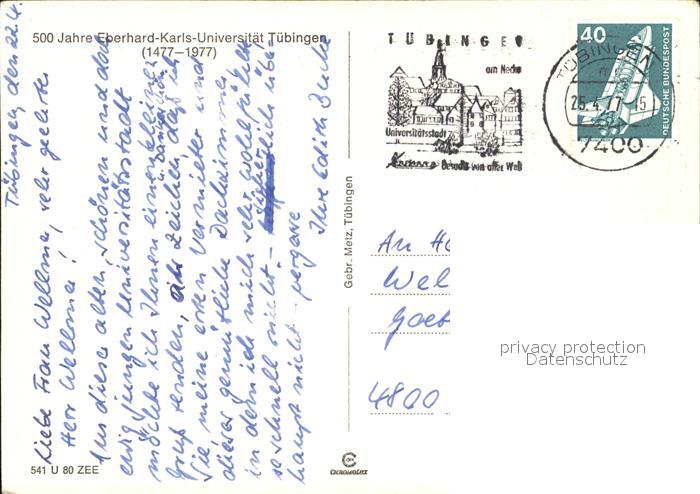 500 Jahre Eberhard-Karls-Universität Tübingen
(1477–1977)
Tübingen, den 22.4.
Liebe Frau Wellmer, sehr geehrter
Herr Wellmer!
Aus dieser alten, schönen und doch
ewig jungen Universitätsstadt
möchte ich Ihnen einen kleinen
Gruß senden, als Zeichen, daß ich
Sie meine ersten Vermieter und
diese gemütliche Dachwohnung,
in der ich mich sehr wohl fühlte
so schnell nicht – über-
haupt nicht – vergesse
Ihre
Gebr. Metz, Tübingen
541 U 80 ZEE
CHROMOLUX
TÜBINGEN
am Neckar
Universitätsstadt
Besucht von aller Welt
TÜBINGEN
25.4.77-15
7400
40
DEUTSCHE BUNDESPOST
An
Wel
Goet
4800
privacy protection
Datenschutz